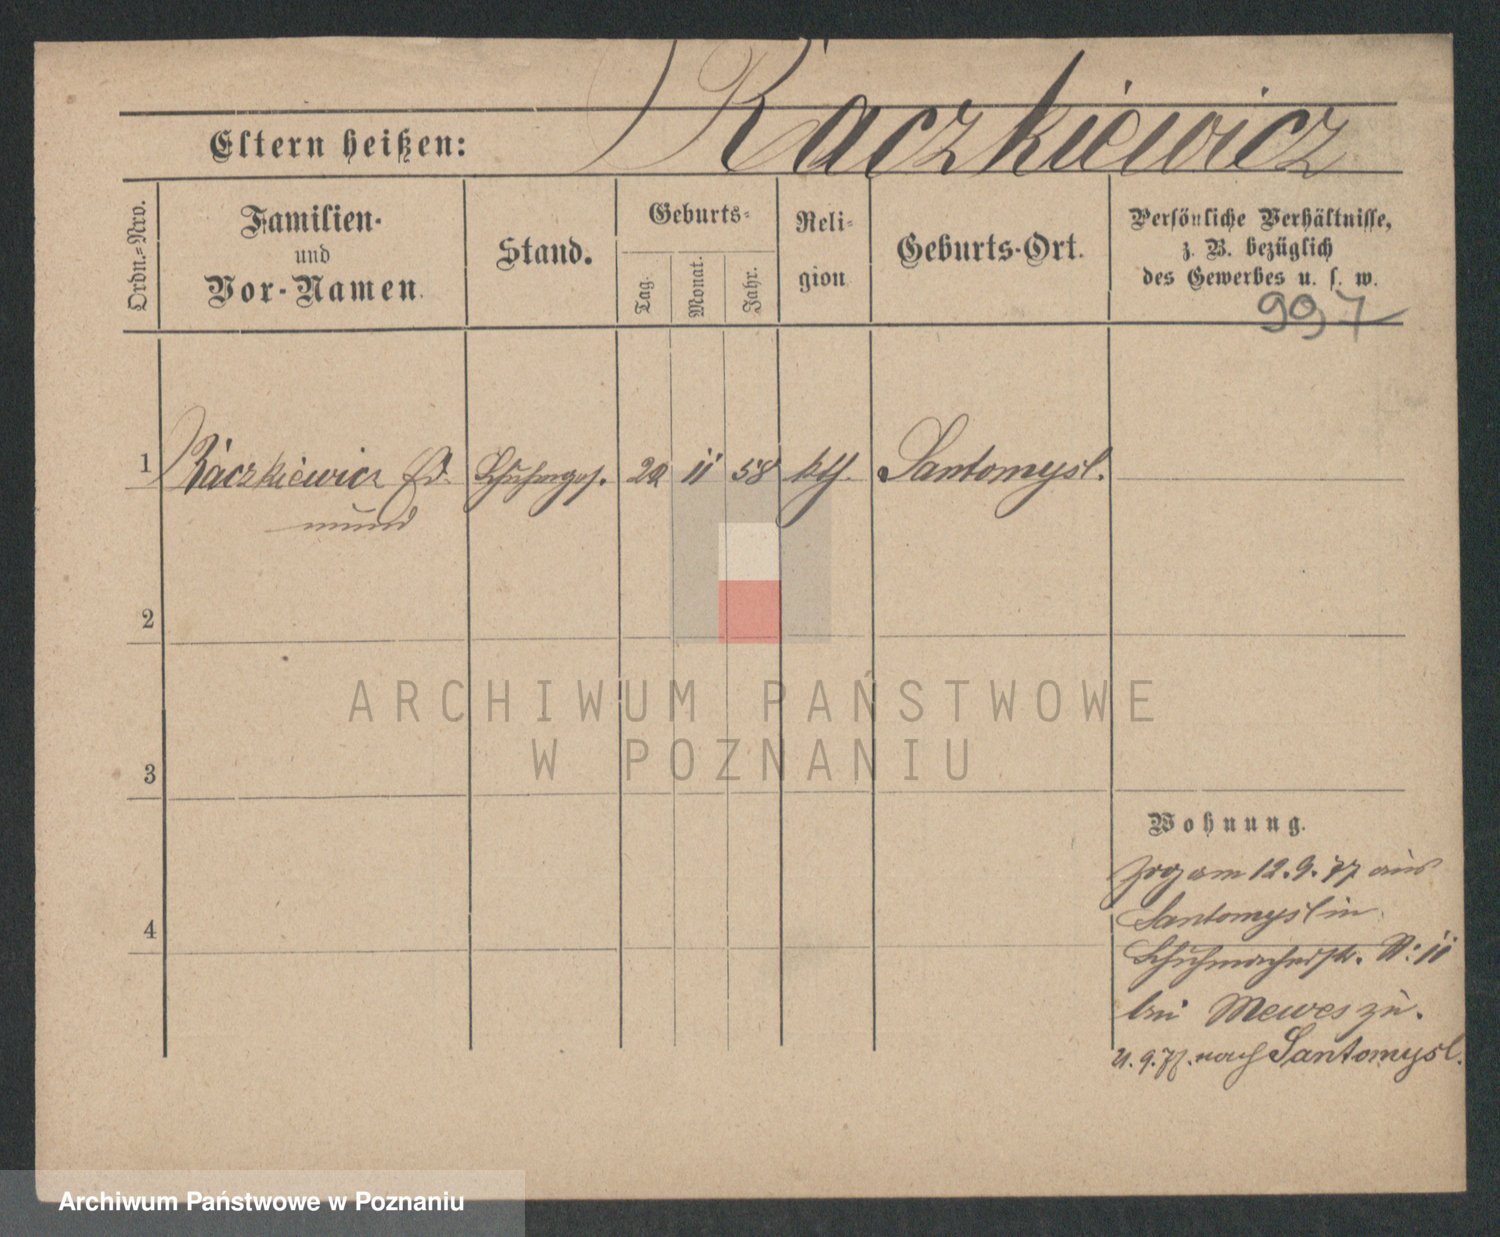 Raczkiewicz
Eltern heißen:
Ordn.-Nro.
Familien-
und
Vor-Namen.
Stand.
Geburts-
Tag.
Monat.
Jahr.
Reli-
gion
Geburts-Ort.
Persönliche Verhältnisse,
z. B. bezüglich
des Gewerbes u. s. w.
997
1 Raczkiewicz Ed- Schuhmges. 20 11 58 kth. Santomysl.
mund
2
3
4
ARCHIWUM PAŃSTWOWE
W POZNANIU
Wohnung.
Zog am 12.9.77 aus
Santomysl in
Schuhmacherstr. N: 11
bei Mewes zu.
9.77. nach Santomysl.
Archiwum Państwowe w Poznaniu